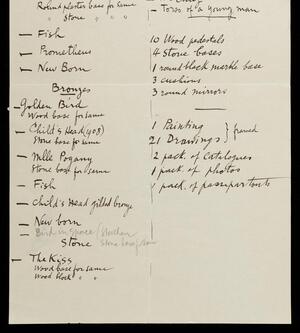 Round plaster base for same
Stone " " "
— Fish
— Prometheus
— New Born
Bronzes
— Golden Bird
Wood base for same
— Child's Head (908)
Stone base for same
— Mlle Pogany
Stone base for same
— Fish
— Child's Head gilded bronze
— New born
— Bird in Space / Steichen
Stone Stone base / same
— The Kiss
Wood base for same
Wood block " "
— Torso of a young man
10 Wood pedestals
4 Stone bases
1 round black marble base
3 cushions
3 round mirrors
1 Painting
21 Drawings } framed
2 pack. of Catalogues
1 pack. of photos
1 pack. of passepartouts